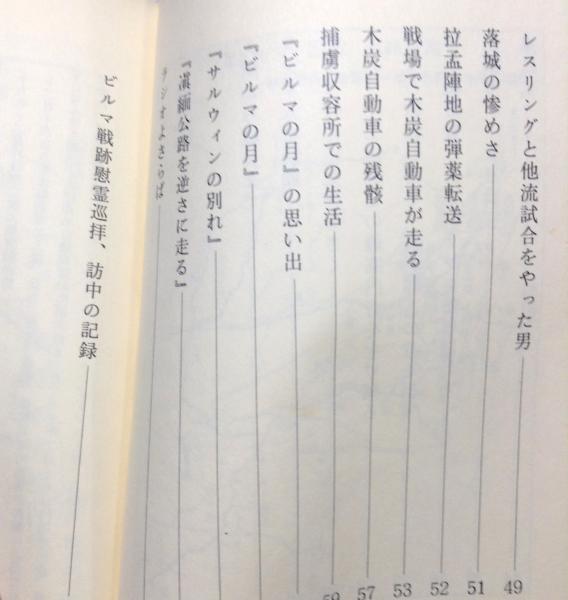 レスリングと他流試合をやった男 49
落城の惨めさ 51
拉孟陣地の弾薬転送 52
戦場で木炭自動車が走る 53
木炭自動車の残骸 57
捕虜収容所での生活 59
『ビルマの月』の思い出
『ビルマの月』
『サルウィンの別れ』
『滇緬公路を逆さに走る』
ラシオよさらば
ビルマ戦跡慰霊巡拝、訪中の記録